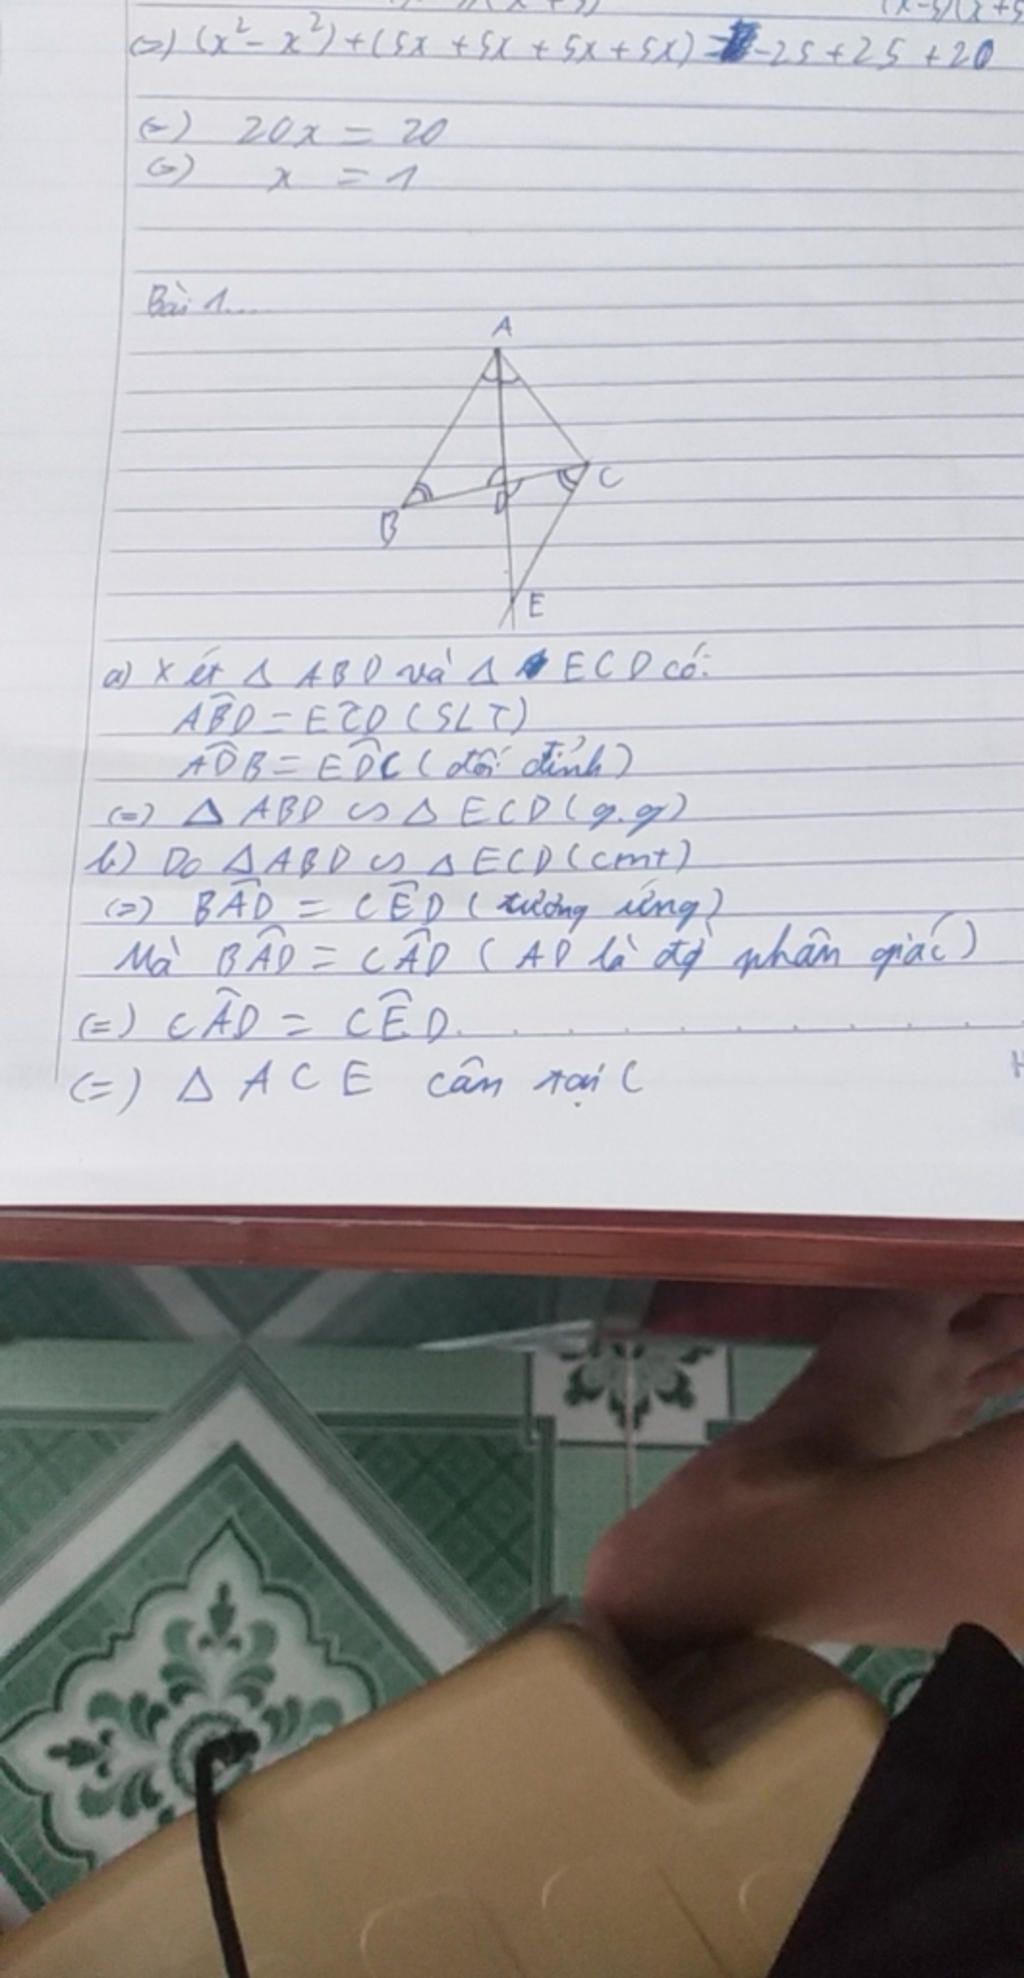 (=) (x² - x²) + (5x + 5x + 5x + 5x) = -25 + 25 + 20
(=) 20x = 20
(=) x = 1
Bài 1....
A
C
B
D
E
a) Xét Δ ABD và Δ ECD có:
ABD̂ = EĈD (SLT)
AD̂B = ED̂C (đối đỉnh)
(=) Δ ABD ∽ Δ ECD (g.g)
b) Do Δ ABD ∽ Δ ECD (cmt)
(=) BÂD = CÊD (tương ứng)
Mà BÂD = CÂD (AD là đg phân giác)
(=) CÂD = CÊD
(=) Δ ACE cân tại C